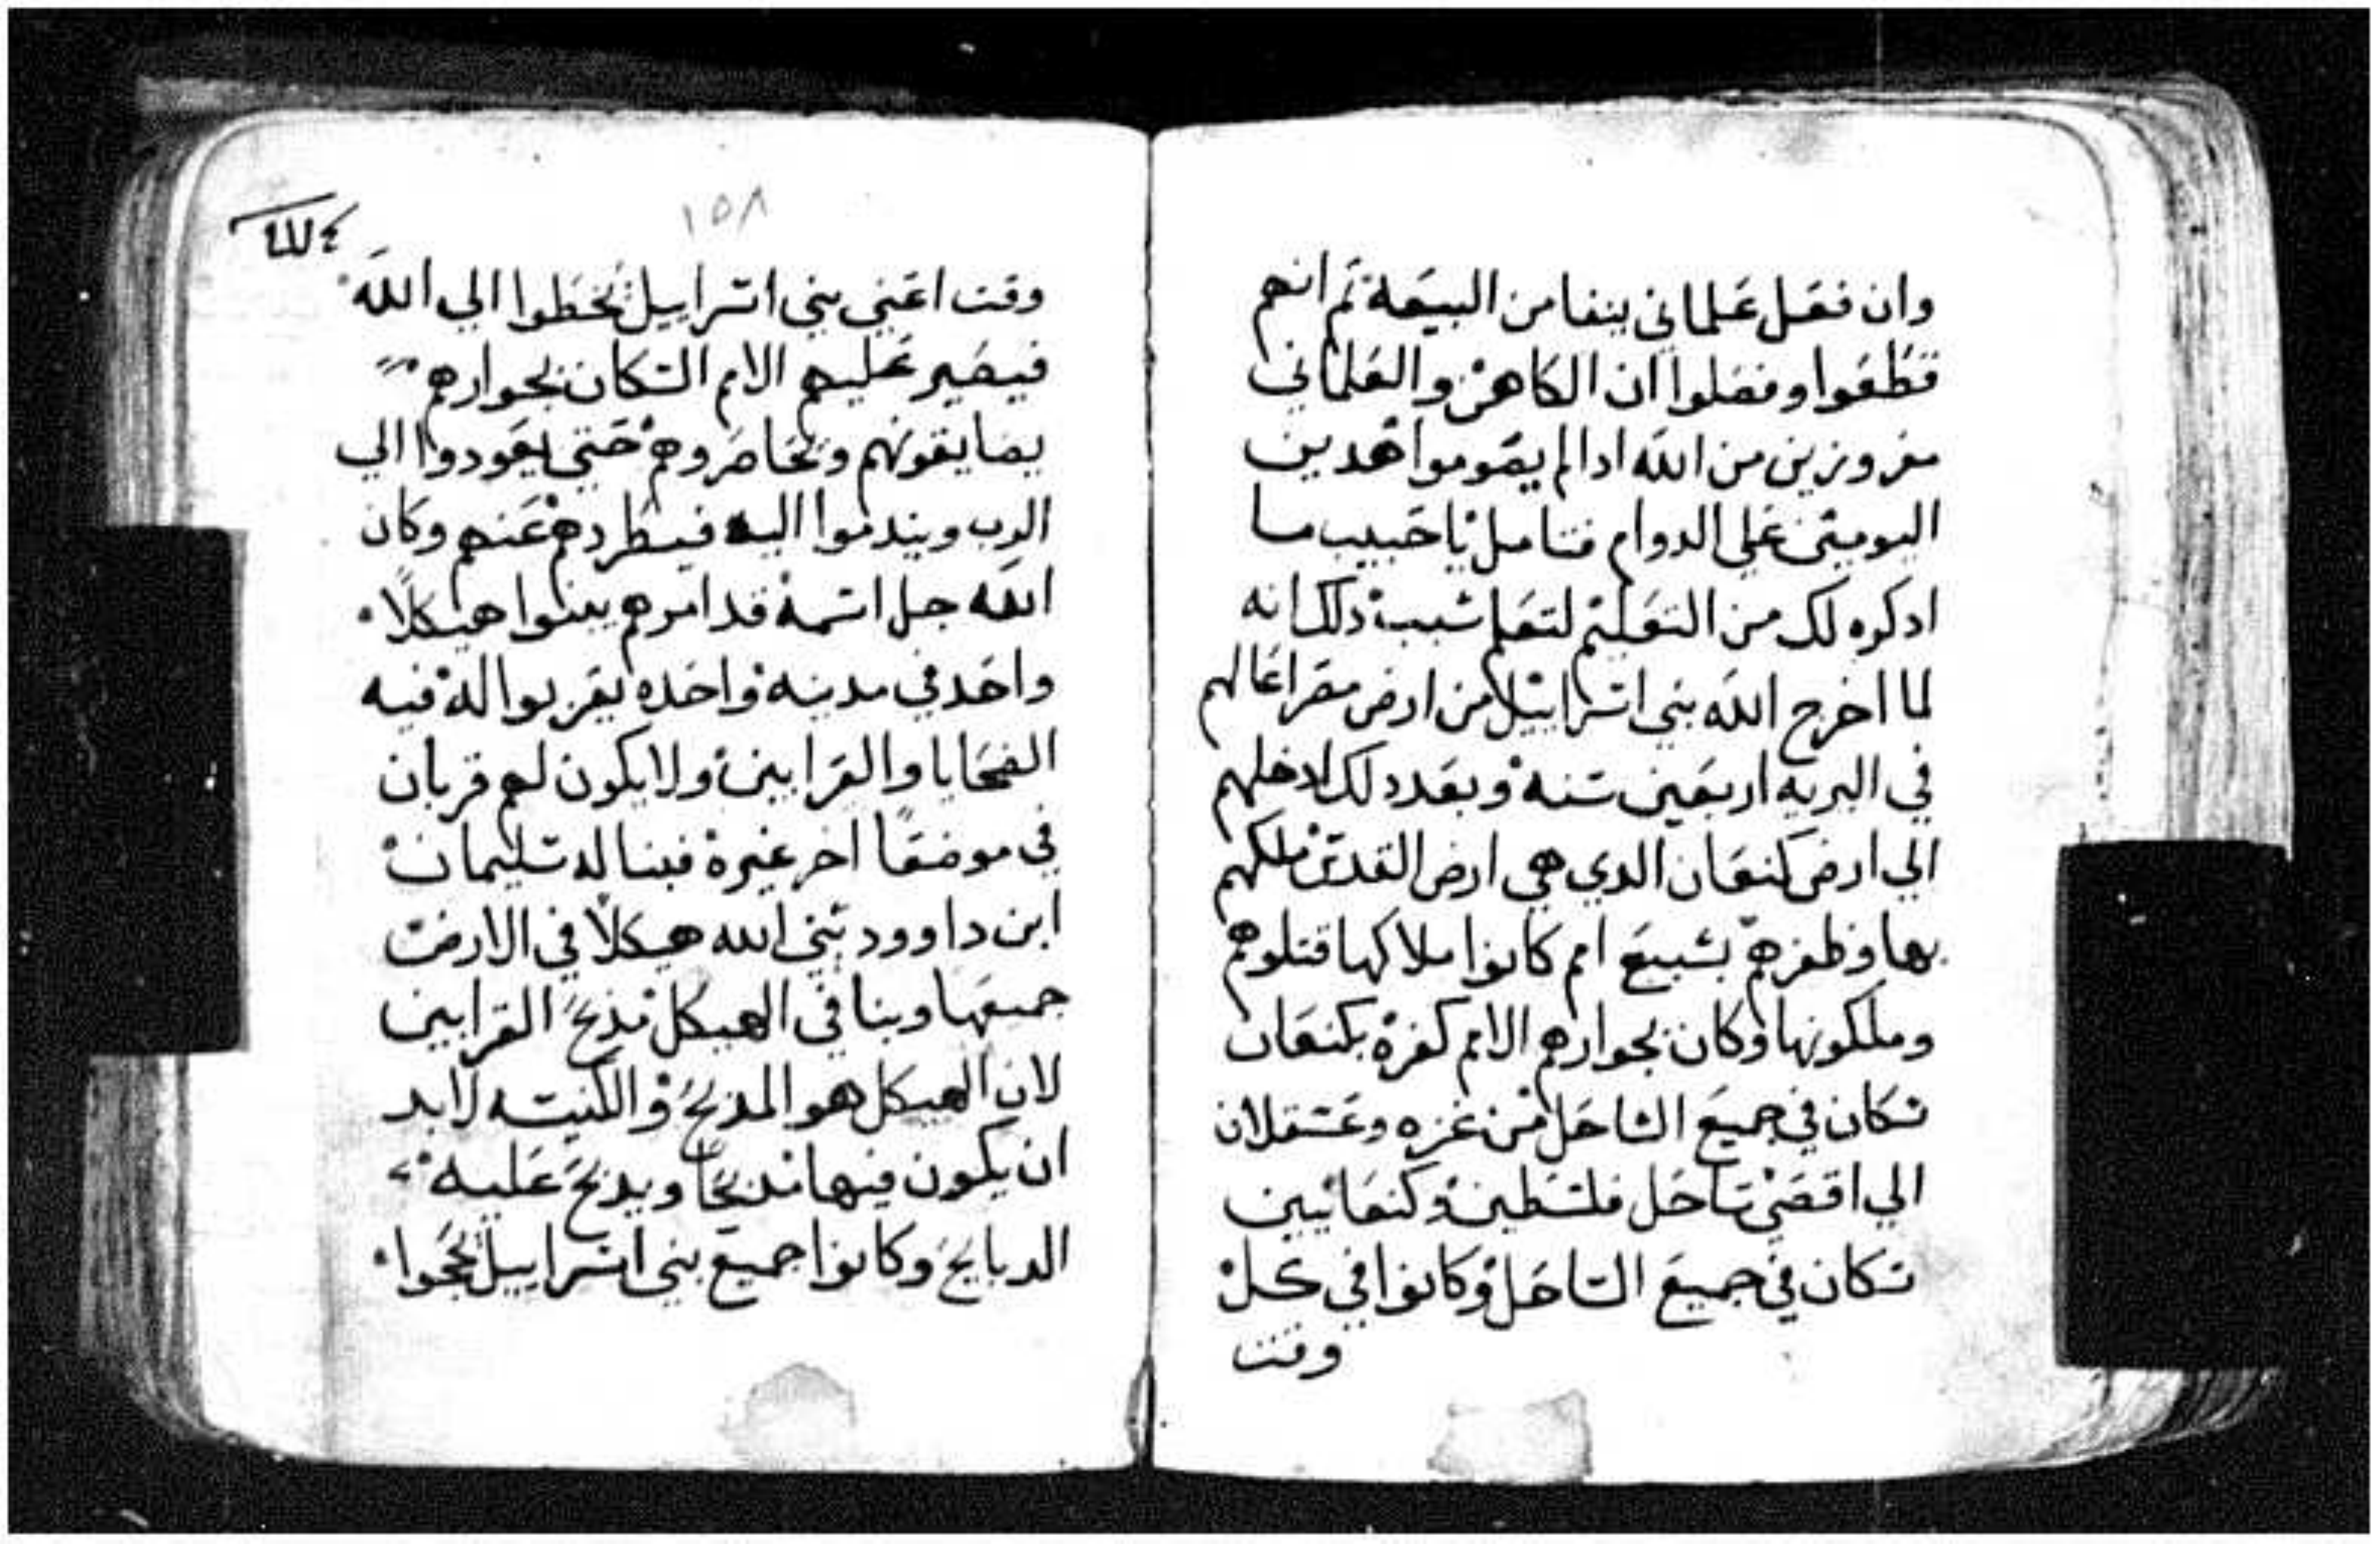 وان فعل علماني ينفا من البيعة تم انهم
قطعوا وفعلوا ان الكاهن والعلماني
مفروزين من الله ادا لم يقوموا هدين
اليوميين علي الدوام فتامل يا حبيب ما
ادكره لك من التعليم لتعلم سبب دلك انه
لما اخرج الله بني اسراييل من ارض مصر اعالهم
في البريه اربعين سنه وبعد دلك ادخلهم
الي ارض كنعان الدي هي ارض القدس ملكهم
بها وظفرهم بسبع امم كانوا ملاكها قتلوهم
وملكونها وكان بجوارهم الامم كفره بكنعان
سكان في جميع الساحل من غزه وعسقلان
الي اقصي ساحل فلسطين وكنعانيين
سكان في جميع الساحل وكانوا في كل
وقت
١٥٨
وقت اعني بني اسراييل يخطوا الي الله
فيصير عليهم الامم السكان بجوارهم
يضايقونهم ويحاصروهم حتي يعودوا الي
الرب ويندموا اليه فيطردهم عنهم وكان
الله جل اسمه قد امرهم يبنوا هيكلا
واحد في مدينه واحده يقربوا له فيه
الضحايا والقرابين ولا يكون لهم قربان
في موضعا اخر غيره فبنا له سليمان
ابن داوود نبي الله هيكلا في الارض
جميعها وبنا في الهيكل مذبح القرابين
لان الهيكل هو المدبح والكنيسه لابد
ان يكون فيها مدبحا ويدبح عليه
الدبايح وكانوا جميع بني اسراييل يحجوا